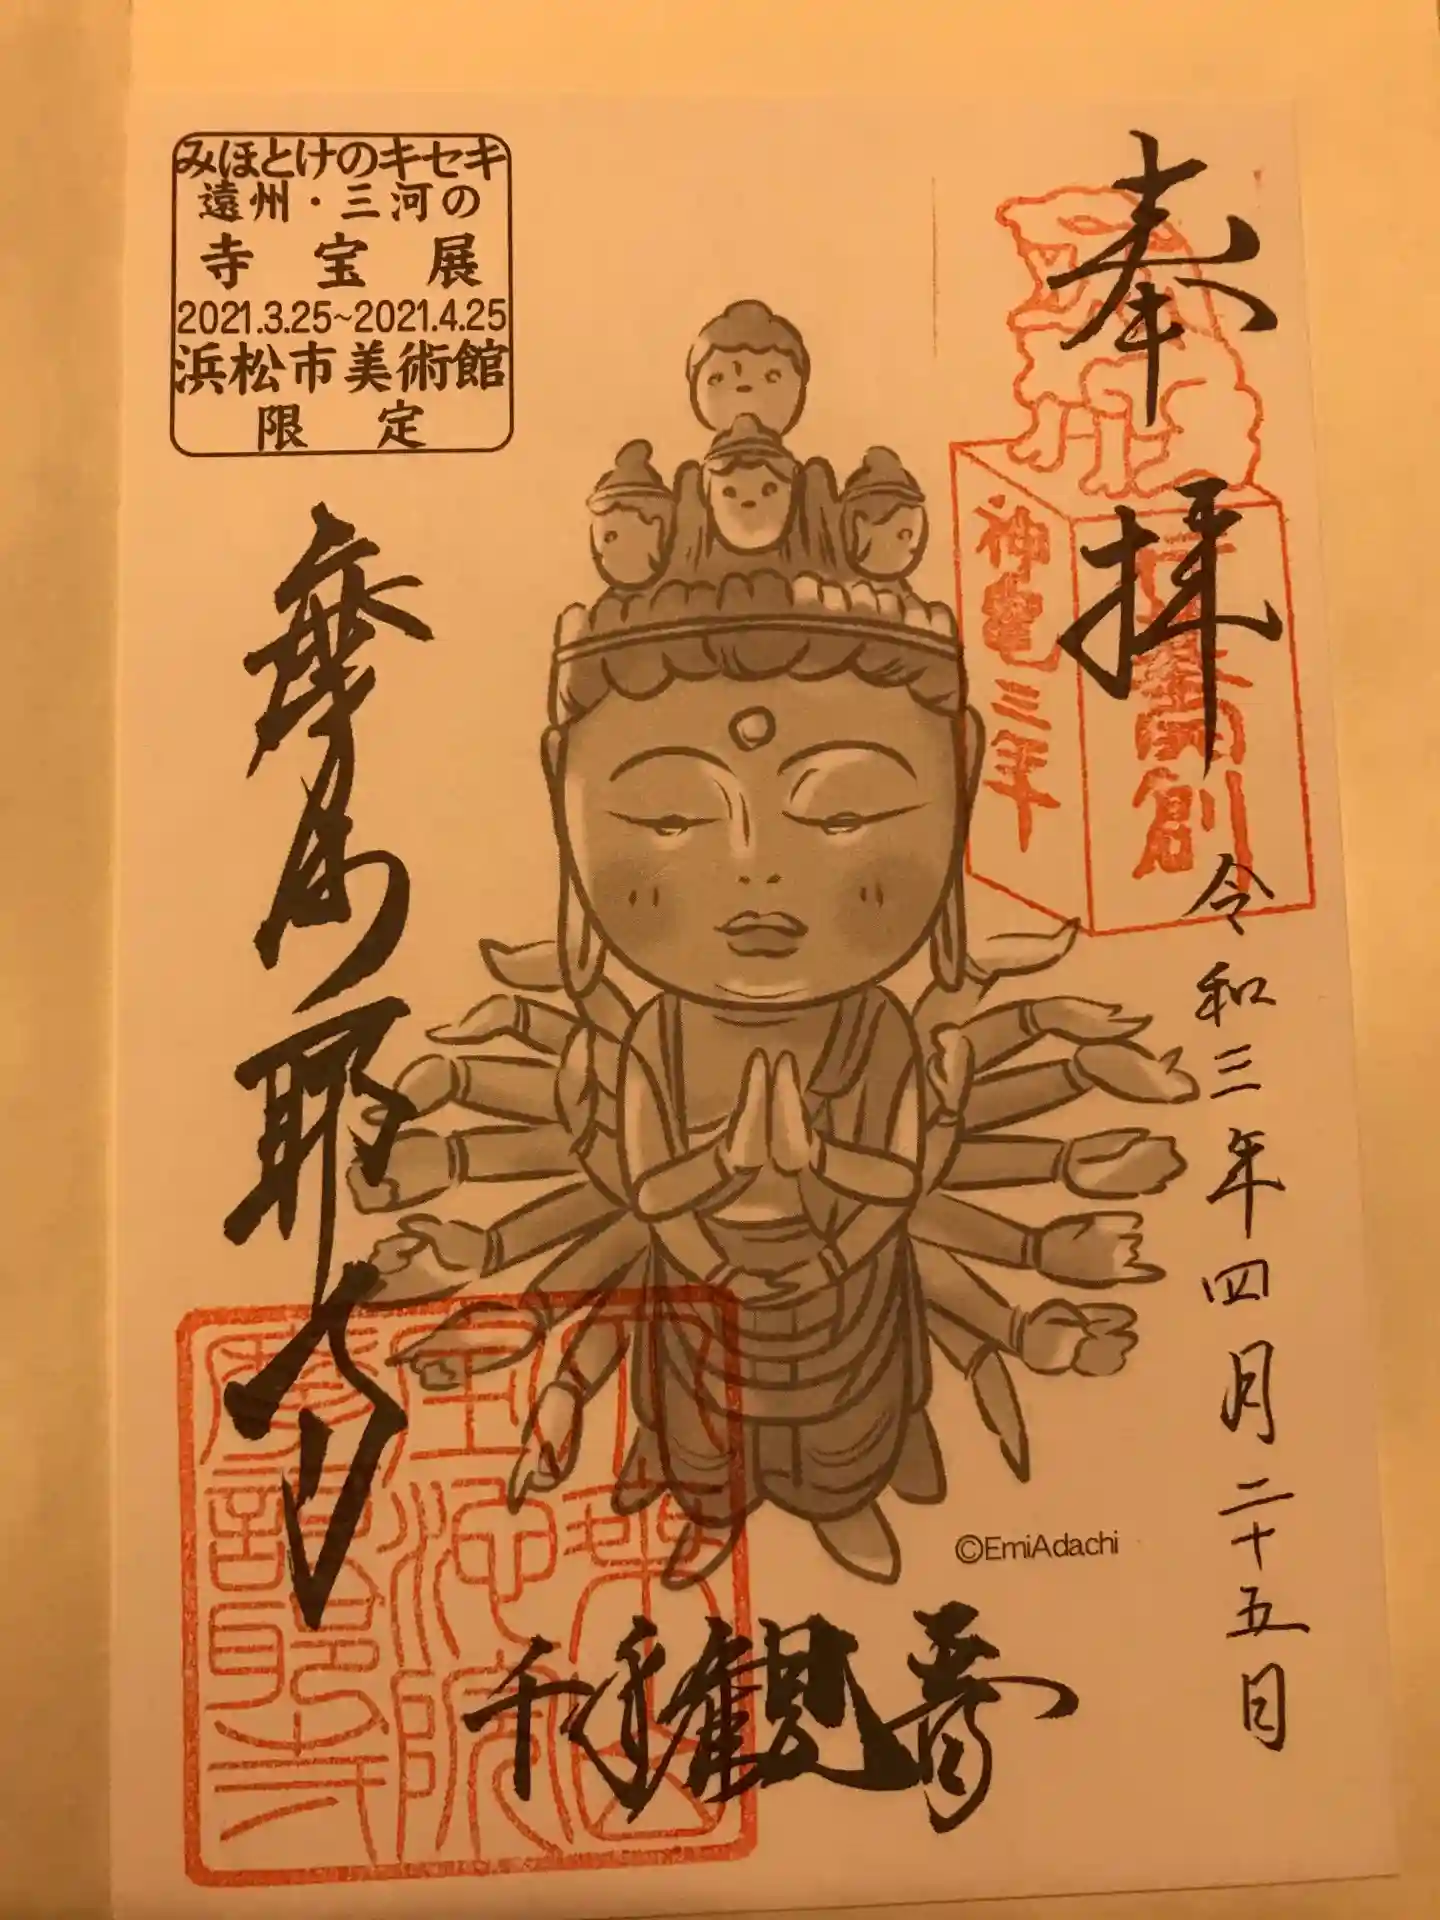 みほとけのキセキ
遠州・三河の
寺宝展
2021.3.25~2021.4.25
浜松市美術館
限定
奉拝
神亀三年
行基開創
令和三年四月二十五日
摩訶耶寺
千手観音
©EmiAdachi